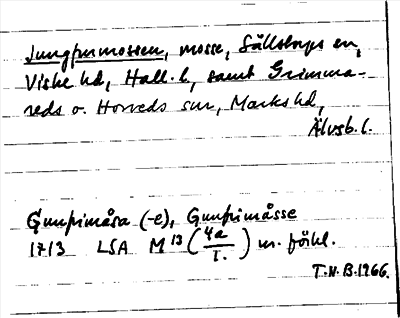 Jungfrumossen, mosse, Sällstorps sn,
Viske hd, Hall. l., samt Grimma-
reds o. Horreds snr, Marks hd,
Älvsb. l.
Gunfrimåsa (-e), Gunfrimåsse
1713 LSA M 13 (4a/I.) m. förkl.
T.H.B. 1966.